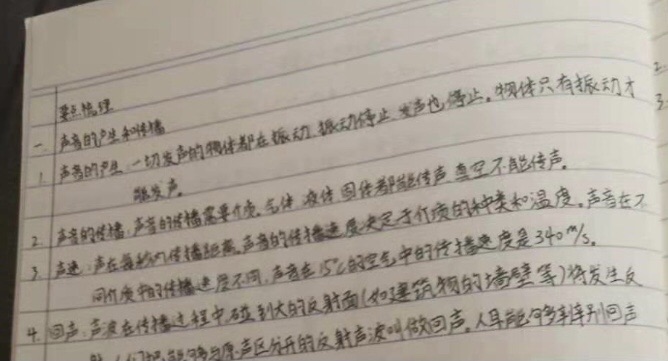 要点梳理
一、声音的产生和传播
1、声音的产生：一切发声的物体都在振动，振动停止，发声也停止。物体只有振动才
能发声。
2、声音的传播：声音的传播需要介质。气体 液体 固体都能传声，真空不能传声。
3、声速：声在每秒内传播距离。声音的传播速度决定于介质的种类和温度。声音在不
同介质中的传播速度不同，声音在15℃的空气中的传播速度是340m/s。
4、回声：声波在传播过程中，碰到大的反射面(如建筑物的墙壁等)将发生反
射，人们把能够与原声区分开的反射声波叫做回声。人耳能够辨别回声
2.
3.